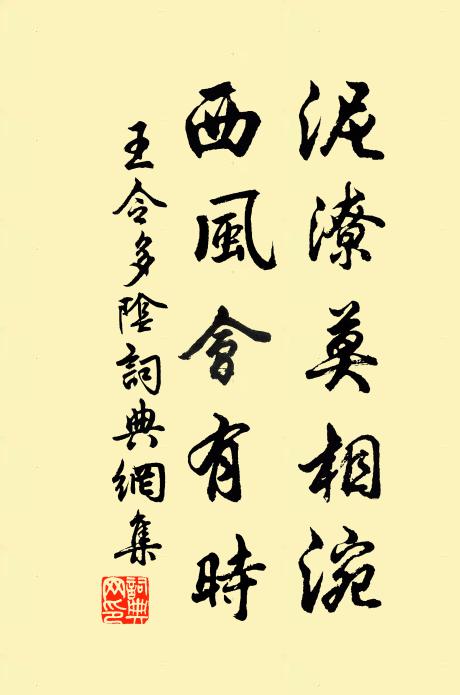 泥潦莫相涴
西風會有時
王令多陰詞典網集
詞典网印